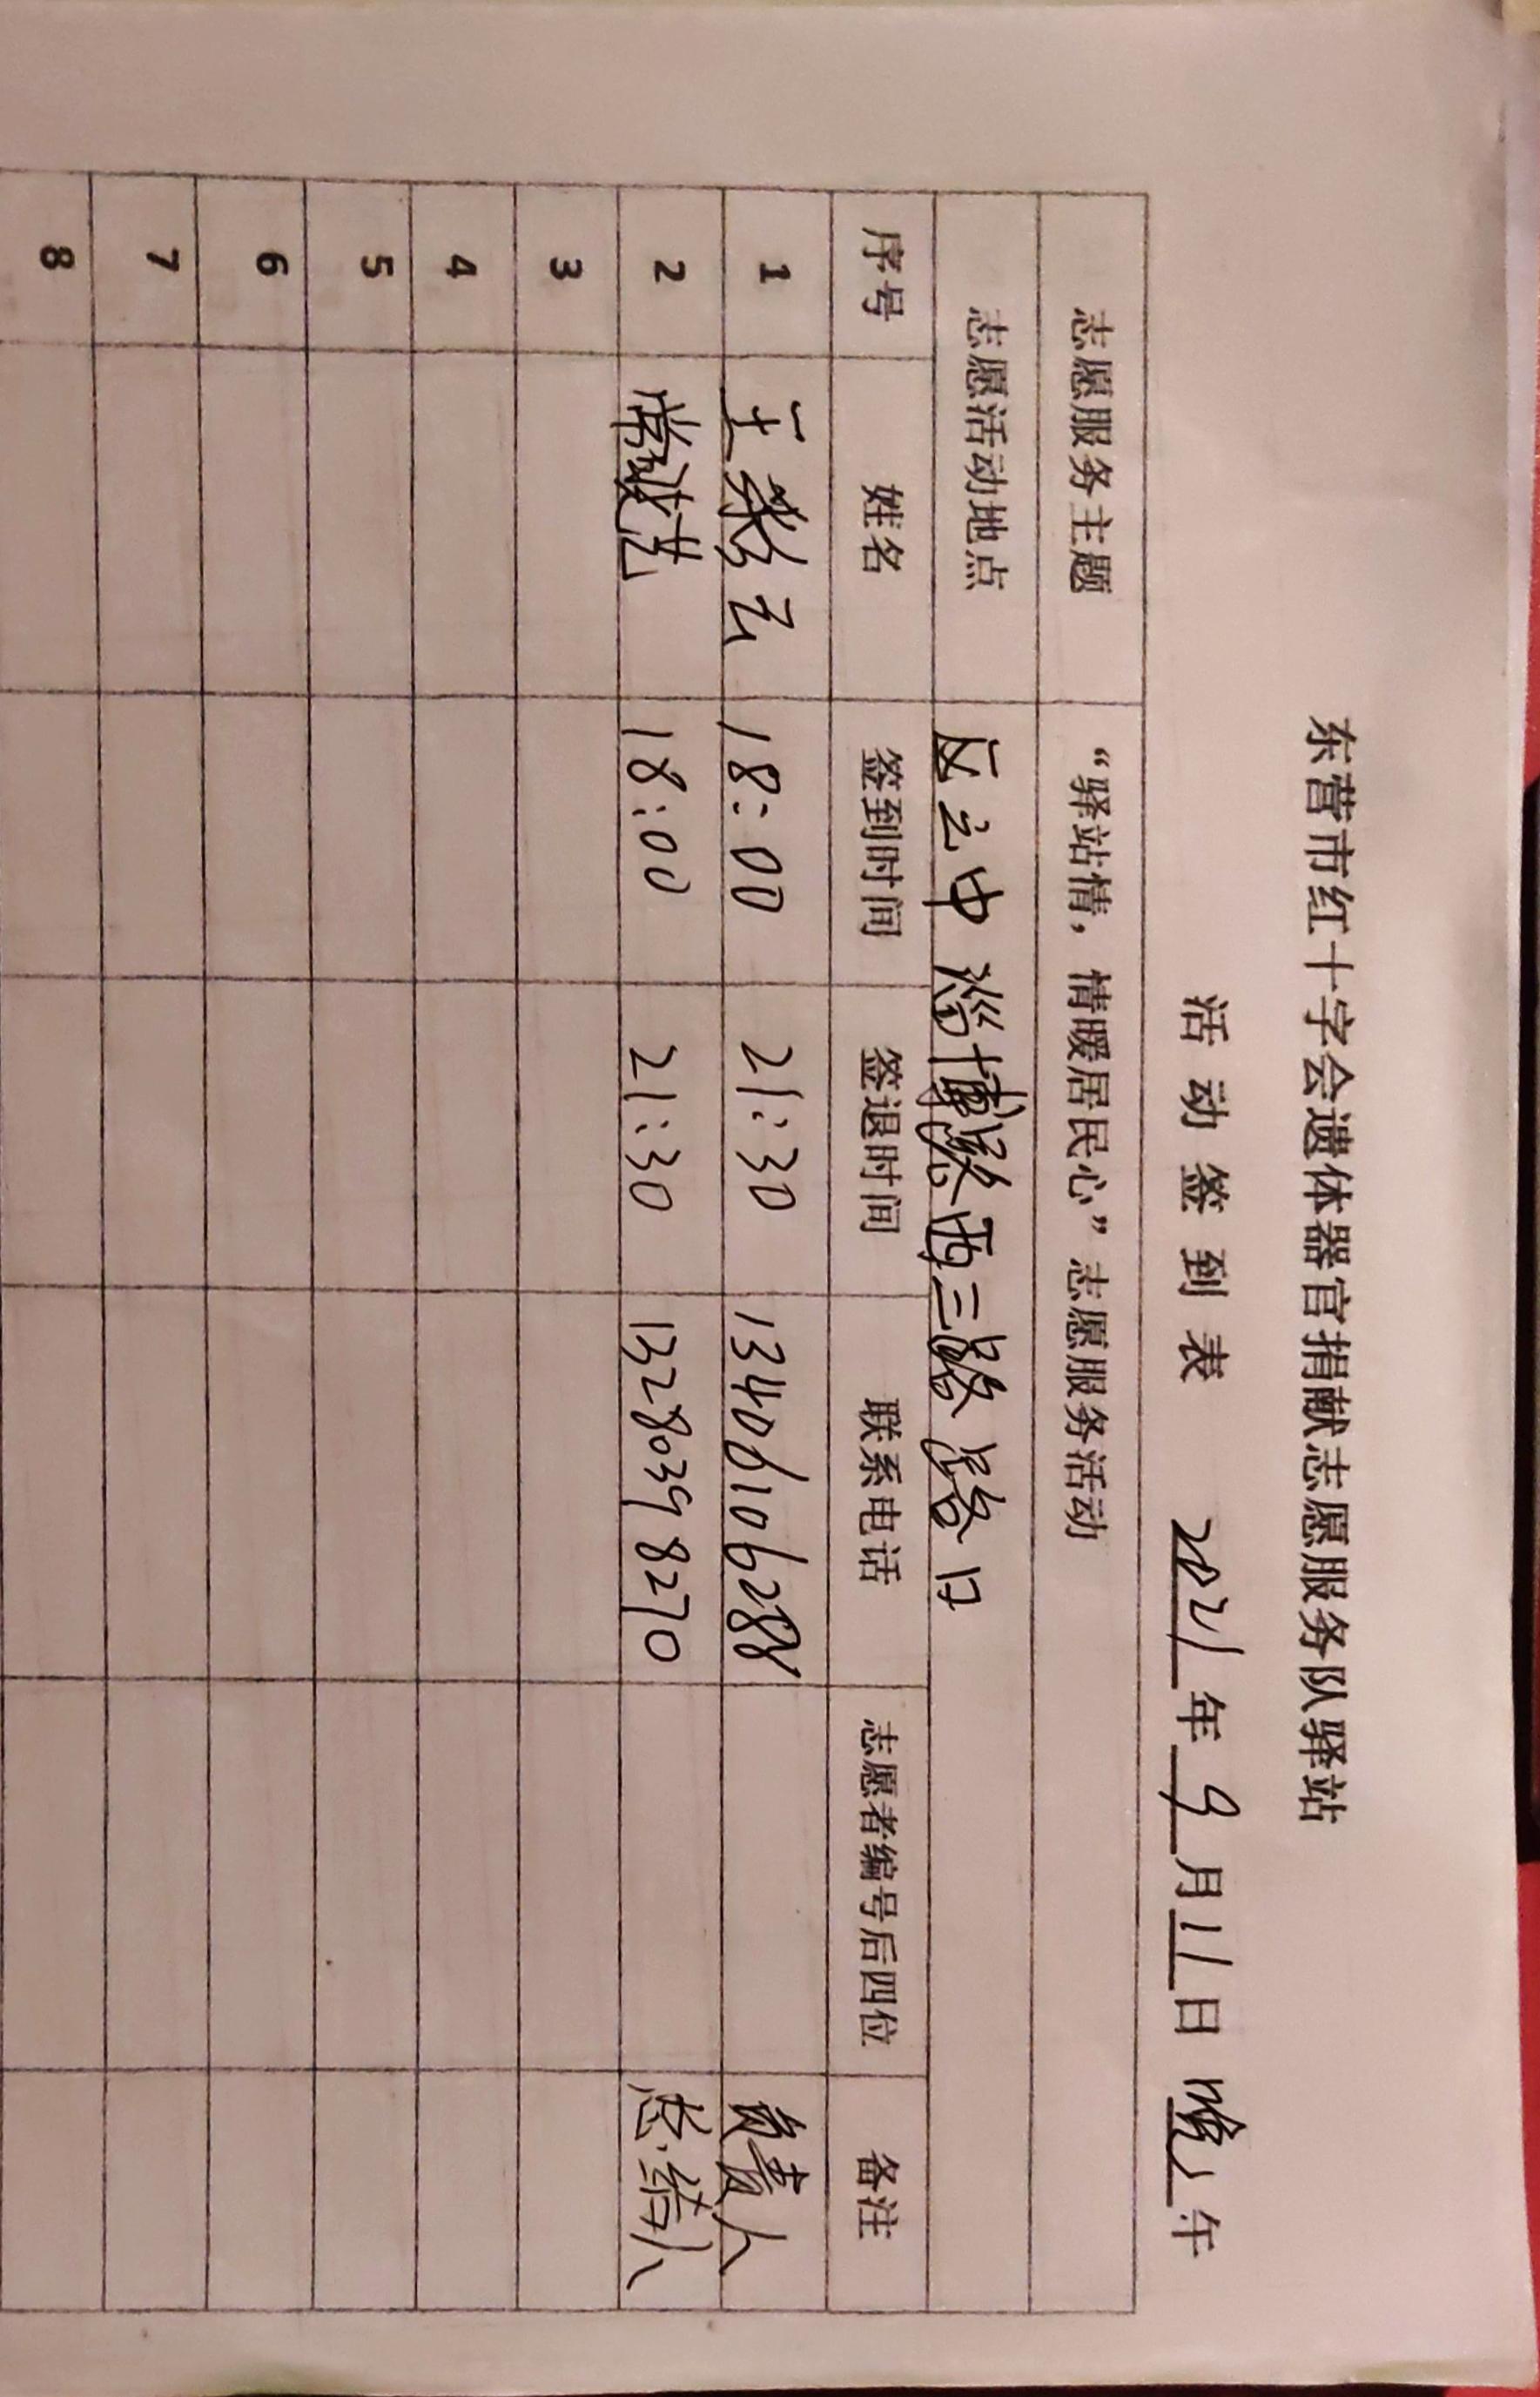 东营市红十字会遗体器官捐献志愿服务队驿站
活动签到表 2021年9月11日晚上午
志愿服务主题 “驿站情，情暖居民心”志愿服务活动
志愿活动地点 淄博路西三路路口
序号 姓名 签到时间 签退时间 联系电话 志愿者编号后四位 备注
1 王彩云 18:00 21:30 13406106288 负责人
2 常 18:00 21:30 13280398270 总结人
3
4
5
6
7
8